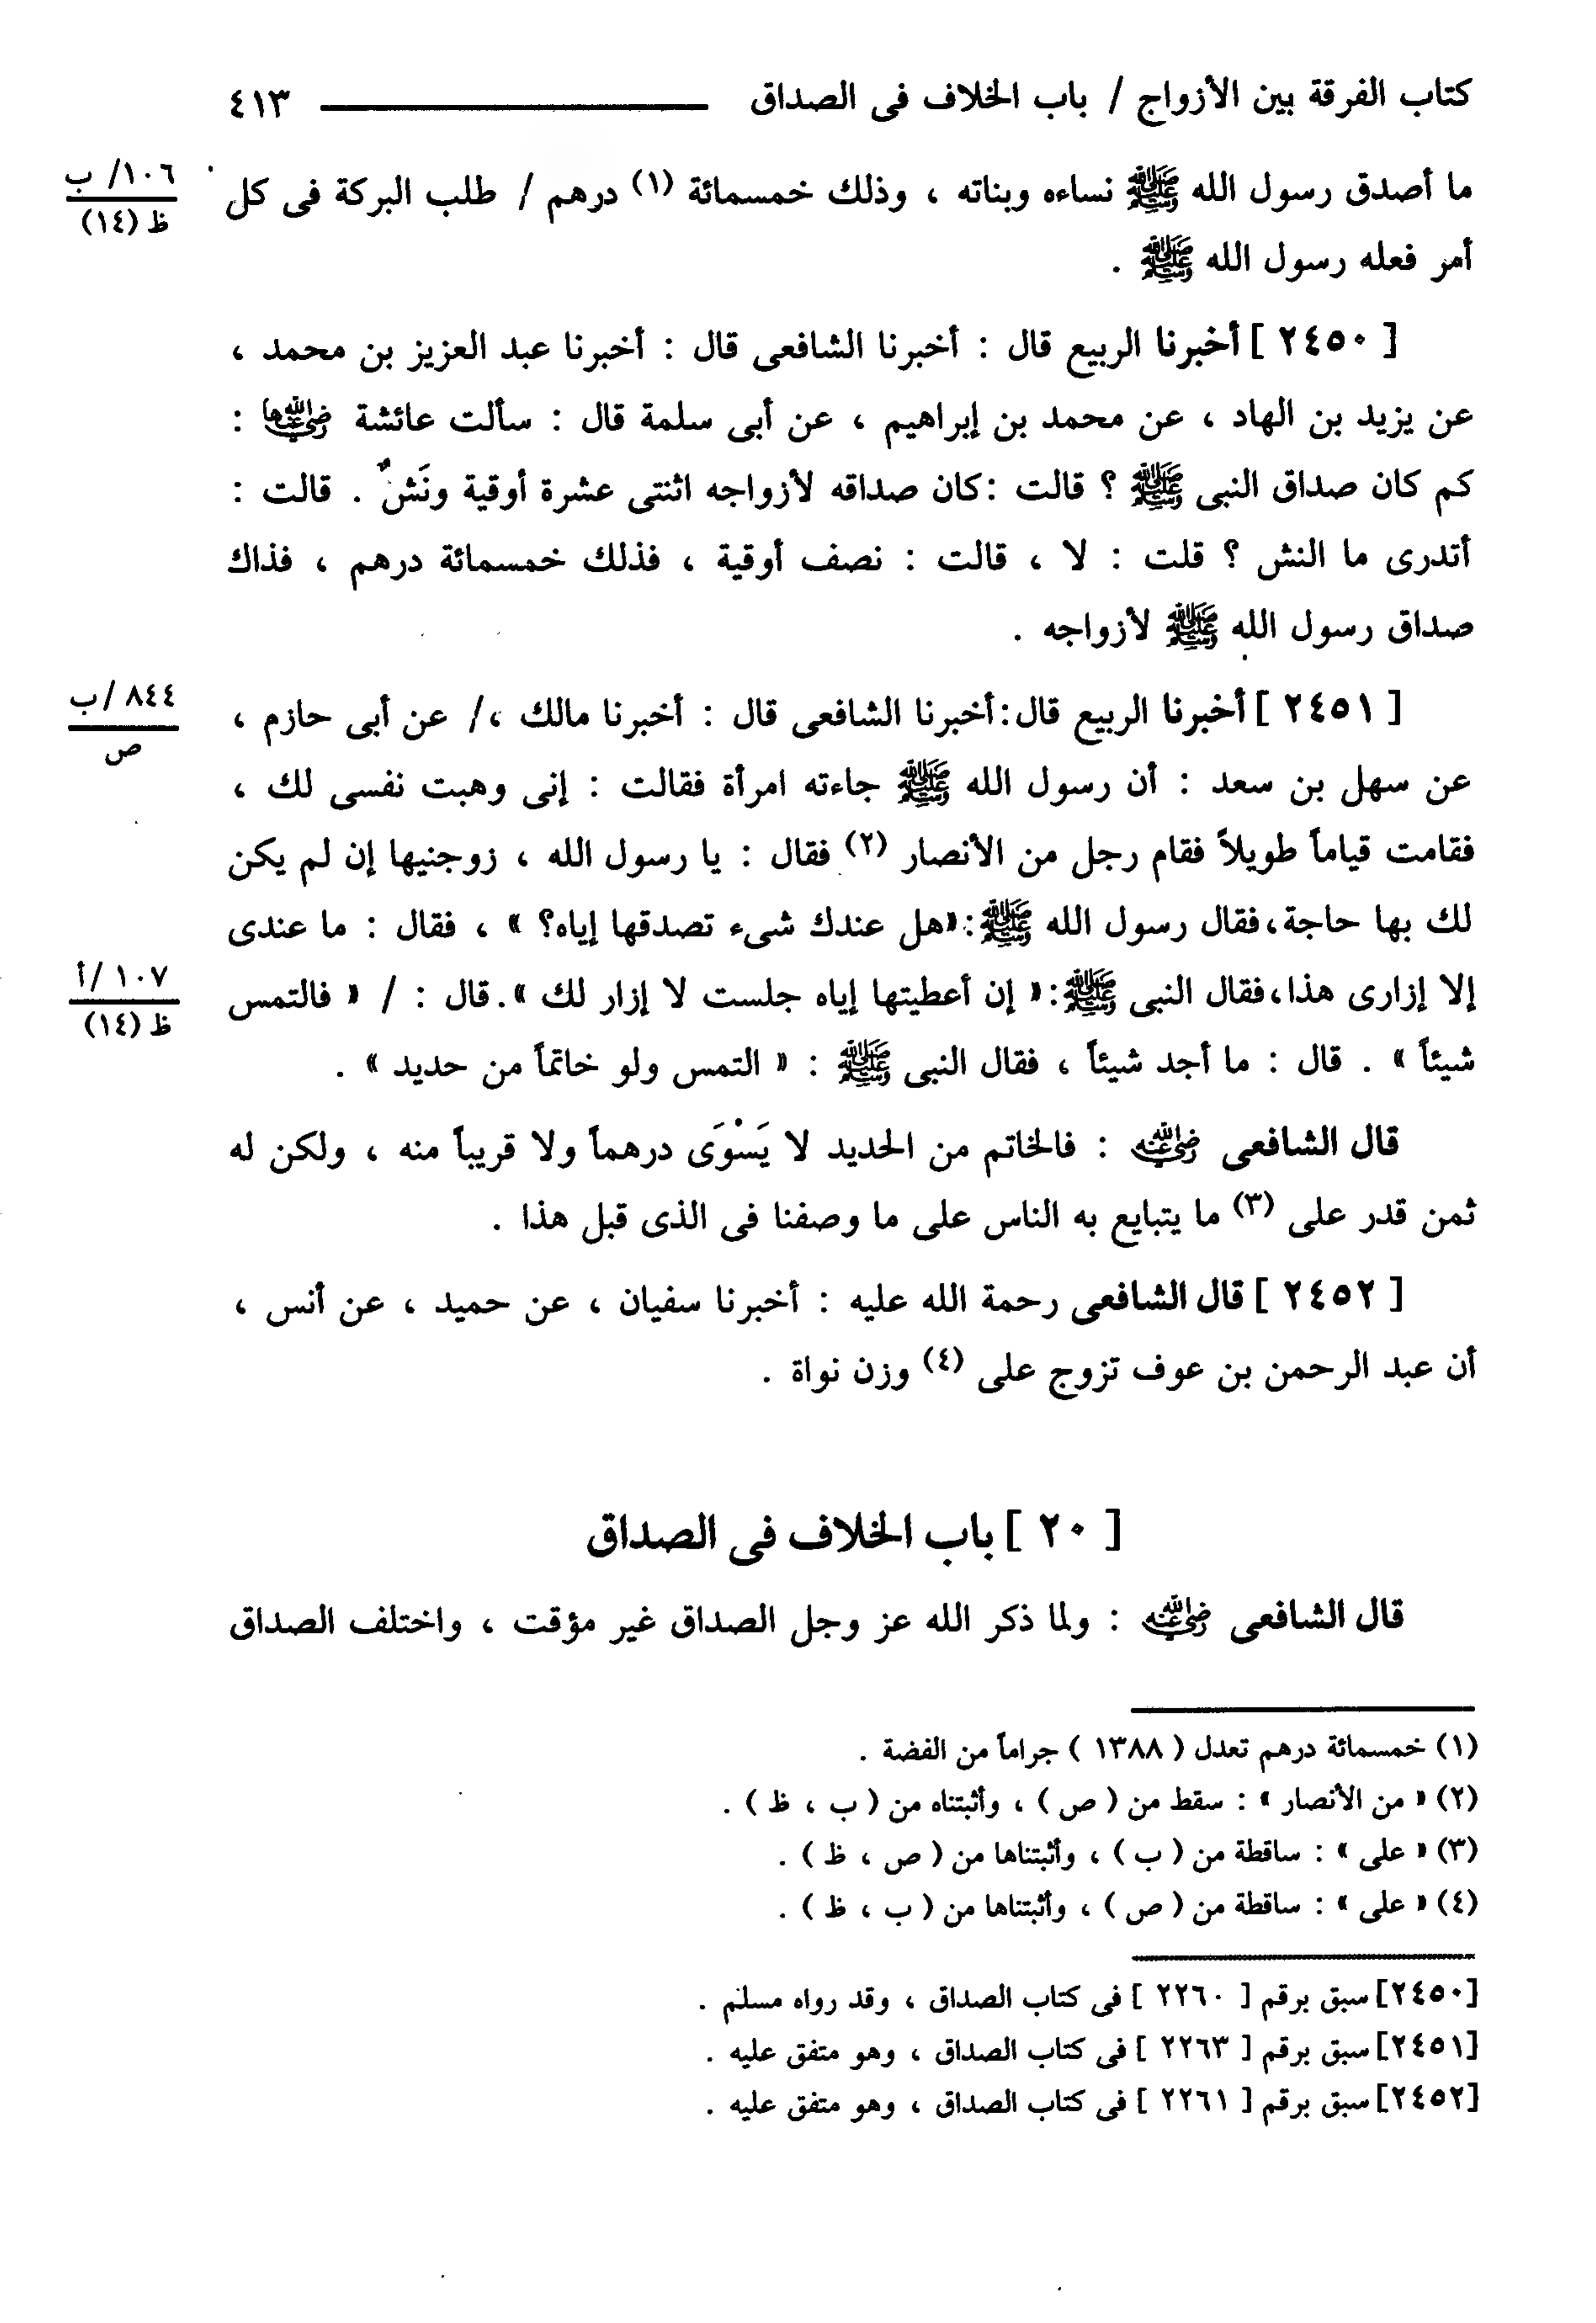 كتاب الفرقة بين الأزواج / باب الخلاف فى الصداق ٤١٣
ما أصدق رسول الله ﷺ نساءه وبناته ، وذلك خمسمائة (١) درهم / طلب البركة فى كل
١٠٦/ ب
ظ (١٤)
أمر فعله رسول الله ﷺ .
[ ٢٤٥٠ ] أخبرنا الربيع قال : أخبرنا الشافعى قال : أخبرنا عبد العزيز بن محمد ،
عن يزيد بن الهاد ، عن محمد بن إبراهيم ، عن أبى سلمة قال : سألت عائشة رضي الله عنها :
كم كان صداق النبى ﷺ ؟ قالت :كان صداقه لأزواجه اثنتى عشرة أوقية ونَشٌ . قالت :
أتدرى ما النش ؟ قلت : لا ، قالت : نصف أوقية ، فذلك خمسمائة درهم ، فذاك
صداق رسول الله ﷺ لأزواجه .
[ ٢٤٥١ ] أخبرنا الربيع قال:أخبرنا الشافعى قال : أخبرنا مالك ،/ عن أبى حازم ،
٨٤٤ /ب
ص
عن سهل بن سعد : أن رسول الله ﷺ جاءته امرأة فقالت : إنى وهبت نفسى لك ،
فقامت قياماً طويلاً فقام رجل من الأنصار (٢) فقال : يا رسول الله ، زوجنيها إن لم يكن
لك بها حاجة،فقال رسول الله ﷺ:«هل عندك شىء تصدقها إياه؟ » ، فقال : ما عندى
إلا إزارى هذا،فقال النبى ﷺ:« إن أعطيتها إياه جلست لا إزار لك ».قال : / « فالتمس
١٠٧ /أ
ظ (١٤)
شيئاً » . قال : ما أجد شيئاً ، فقال النبى ﷺ : « التمس ولو خاتماً من حديد » .
قال الشافعى رضي الله عنه : فالخاتم من الحديد لا يَسْوَى درهماً ولا قريباً منه ، ولكن له
ثمن قدر على (٣) ما يتبايع به الناس على ما وصفنا فى الذى قبل هذا .
[ ٢٤٥٢ ] قال الشافعى رحمة الله عليه : أخبرنا سفيان ، عن حميد ، عن أنس ،
أن عبد الرحمن بن عوف تزوج على (٤) وزن نواة .
[ ٢٠ ] باب الخلاف فى الصداق
قال الشافعى رضي الله عنه : ولما ذكر الله عز وجل الصداق غير مؤقت ، واختلف الصداق
(١) خمسمائة درهم تعدل ( ١٣٨٨ ) جراماً من الفضة .
(٢) « من الأنصار » : سقط من ( ص ) ، وأثبتناه من ( ب ، ظ ) .
(٣) « على » : ساقطة من ( ب ) ، وأثبتناها من ( ص ، ظ ) .
(٤) « على » : ساقطة من ( ص ) ، وأثبتناها من ( ب ، ظ ) .
[٢٤٥٠] سبق برقم [ ٢٢٦٠ ] فى كتاب الصداق ، وقد رواه مسلم .
[٢٤٥١] سبق برقم [ ٢٢٦٣ ] فى كتاب الصداق ، وهو متفق عليه .
[٢٤٥٢] سبق برقم [ ٢٢٦١ ] فى كتاب الصداق ، وهو متفق عليه .